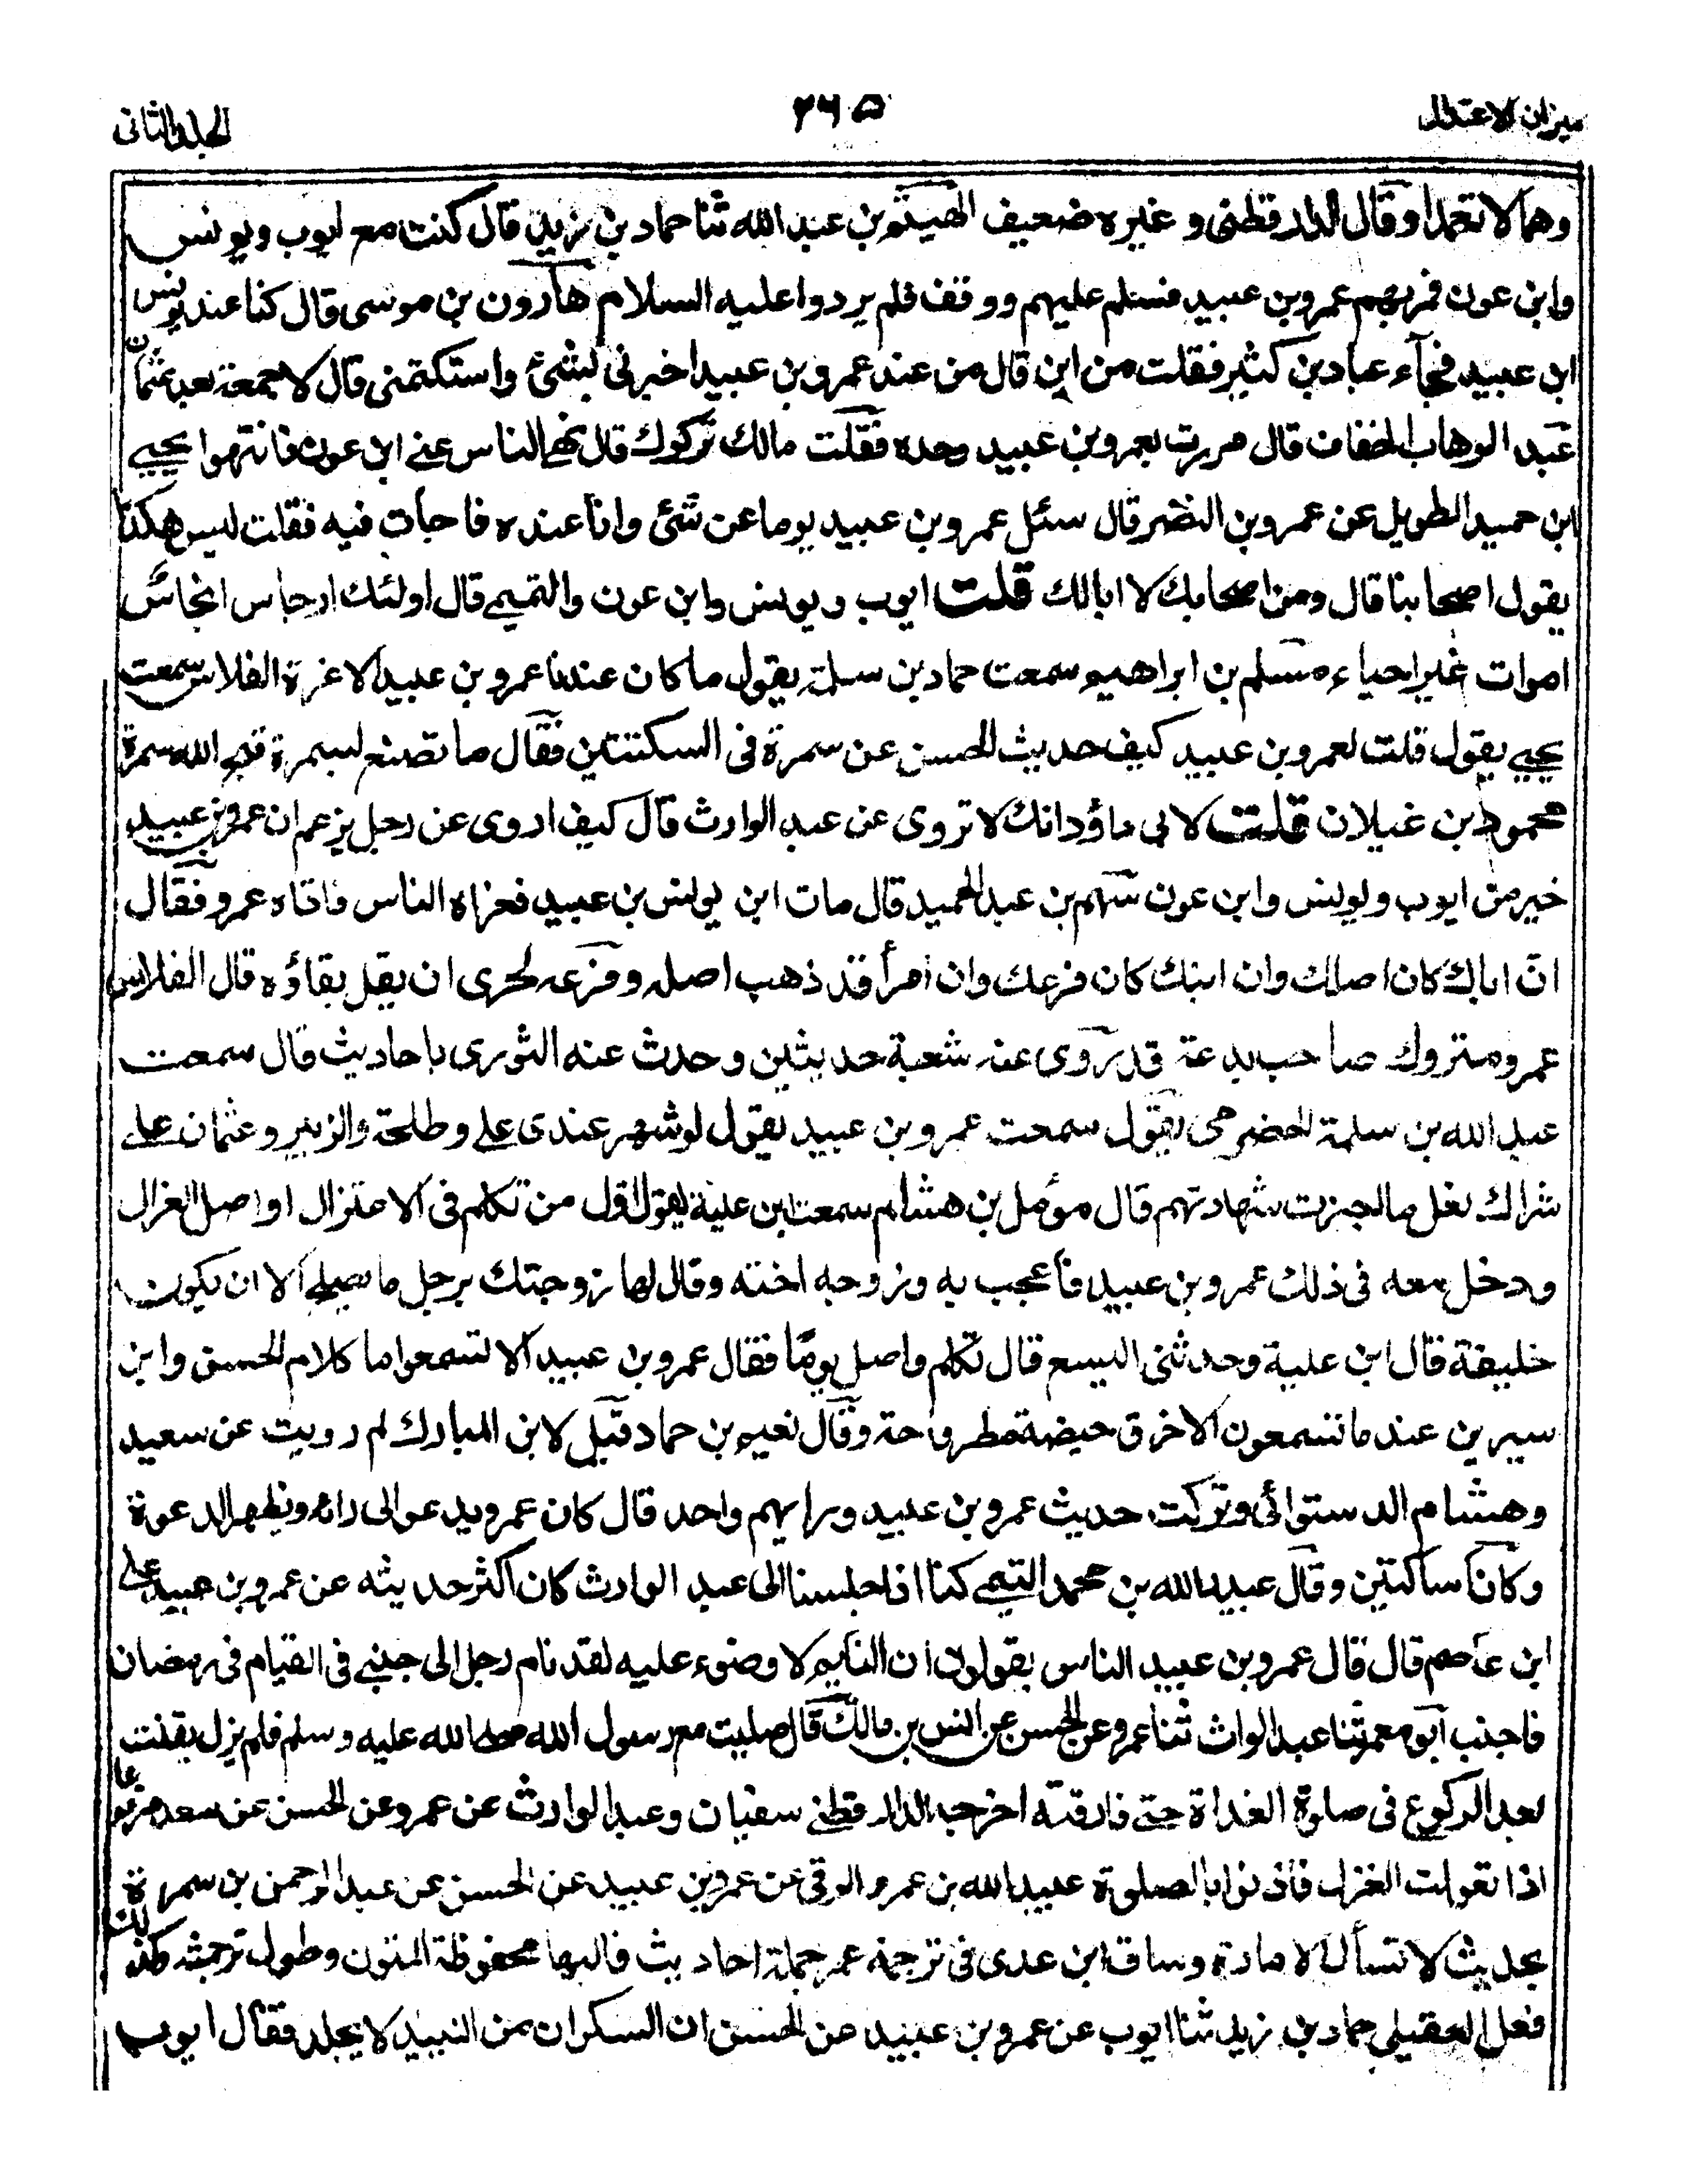 ميزان الاعتدال
٢٦٥
المجلد الثانى
وهما لا تعمدا وقال الدارقطنى و غيره ضعيف الهيثم بن عبد الله ثنا حماد بن زيد قال كنت مع ايوب ويونس
وابن عون فمر بهم عمرو بن عبيد فسلم عليهم ووقف فلم يردوا عليه السلام هارون بن موسى قال كنا عند يونس
ابن عبيد فجآء عباد بن كثير فقلت من اين قال من عند عمرو بن عبيد اخبرنى بشئ واستكتمنى قال لا جمعة بعد عثمان
عبد الوهاب الخفاف قال مررت بعمرو بن عبيد وحده فقلت مالك تركوك قال نهى الناس عنى ابن عون فانتهوا يحيى
ابن حميد الطويل عن عمرو بن النضر قال سئل عمرو بن عبيد يوما عن شئ وانا عنده فاجاب فيه فقلت ليس هكذا
يقول اصحابنا قال ومن اصحابك لا ابالك قلت ايوب ويونس وابن عون والتيمى قال اولئك ارجاس انجاس
اموات غير احياء مسلم بن ابراهيم سمعت حماد بن سلمة يقول ما كان عندنا عمرو بن عبيد الا عرة الفلاس سمعت
يحيى يقول قلت لعمرو بن عبيد كيف حديث الحسن عن سمرة فى السكتتين فقال ما تصنع لسمرة قبح الله سمرة
محمود بن غيلان قلت لابى داؤد انك لا تروى عن عبد الوارث قال كيف اروى عن رجل يزعم ان عمرو بن عبيد
خير من ايوب ويونس وابن عون سهم بن عبد الحميد قال مات ابن يونس بن عبيد فعزاه الناس فاتاه عمرو فقال
انّ اباك كان اصلك وان ابنك كان فرعك وان امرأ قد ذهب اصله وفرعه لحرى ان يقل بقاؤه قال الفلاس
عمرو متروك صاحب بدعة قد روى عنه شعبة حديثين وحدث عنه الثورى باحاديث قال سمعت
عبد الله بن سلمة الحضرمى يقول سمعت عمرو بن عبيد يقول لو شهد عندى على وطلحة والزبير وعثمان على
شراك نعل ما اجزت شهادتهم قال مؤمل بن هشام سمعت ابن علية يقول اول من تكلم فى الاعتزال اواصل الغزال
ودخل معه فى ذلك عمرو بن عبيد فاعجب به وزوجه اخته وقال لها زوجتك برجل ما يصلح الا ان يكون
خليفة قال ابن علية وحدثنى اليسع قال تكلم واصل يومًا فقال عمرو بن عبيد الا تسمعوا ما كلام الحسن وابن
سيرين عند ما تسمعون الا خرق حيضة مطروحة وقال نعيم بن حماد قيل لابن المبارك لم رويت عن سعيد
وهشام الدستوائى وتركت حديث عمرو بن عبيد ورايهم واحد قال كان عمرو يدعو الى رائه ويظهر الدعوة
وكانا ساكتين وقال عبيد الله بن محمد التيمى كنا اذا جلسنا الى عبد الوارث كان اكثر حديثه عن عمرو بن عبيد على
ابن عاصم قال قال عمرو بن عبيد الناس يقولون ان النايم لا وضوء عليه لقد نام رجل الى جنبى فى القيام فى رمضان
فاجنب ابو معمر ثنا عبد الوارث ثنا عمرو عن الحسن عن انس بن مالك قال صليت مع رسول الله صلى الله عليه وسلم فلم يزل يقنت
بعد الركوع فى صلوة الغداة حتى فارقته اخرجه الدارقطنى سفيان وعبد الوارث عن عمرو عن الحسن عن سعد مرفوعا
اذا تغولت الغول فاذنوا بالصلوة عبيد الله بن عمرو الرقى عن عمرو بن عبيد عن الحسن عن عبد الرحمن بن سمرة
بحديث لا تسأل الامارة وساق ابن عدى فى ترجمة عمر جملة احاديث غالبها محفوظة المتون وطول ترجمته كذلك
فعل العقيلى حماد بن زيد ثنا ايوب عن عمرو بن عبيد عن الحسن ان السكران من النبيذ لا يجلد فقال ايوب